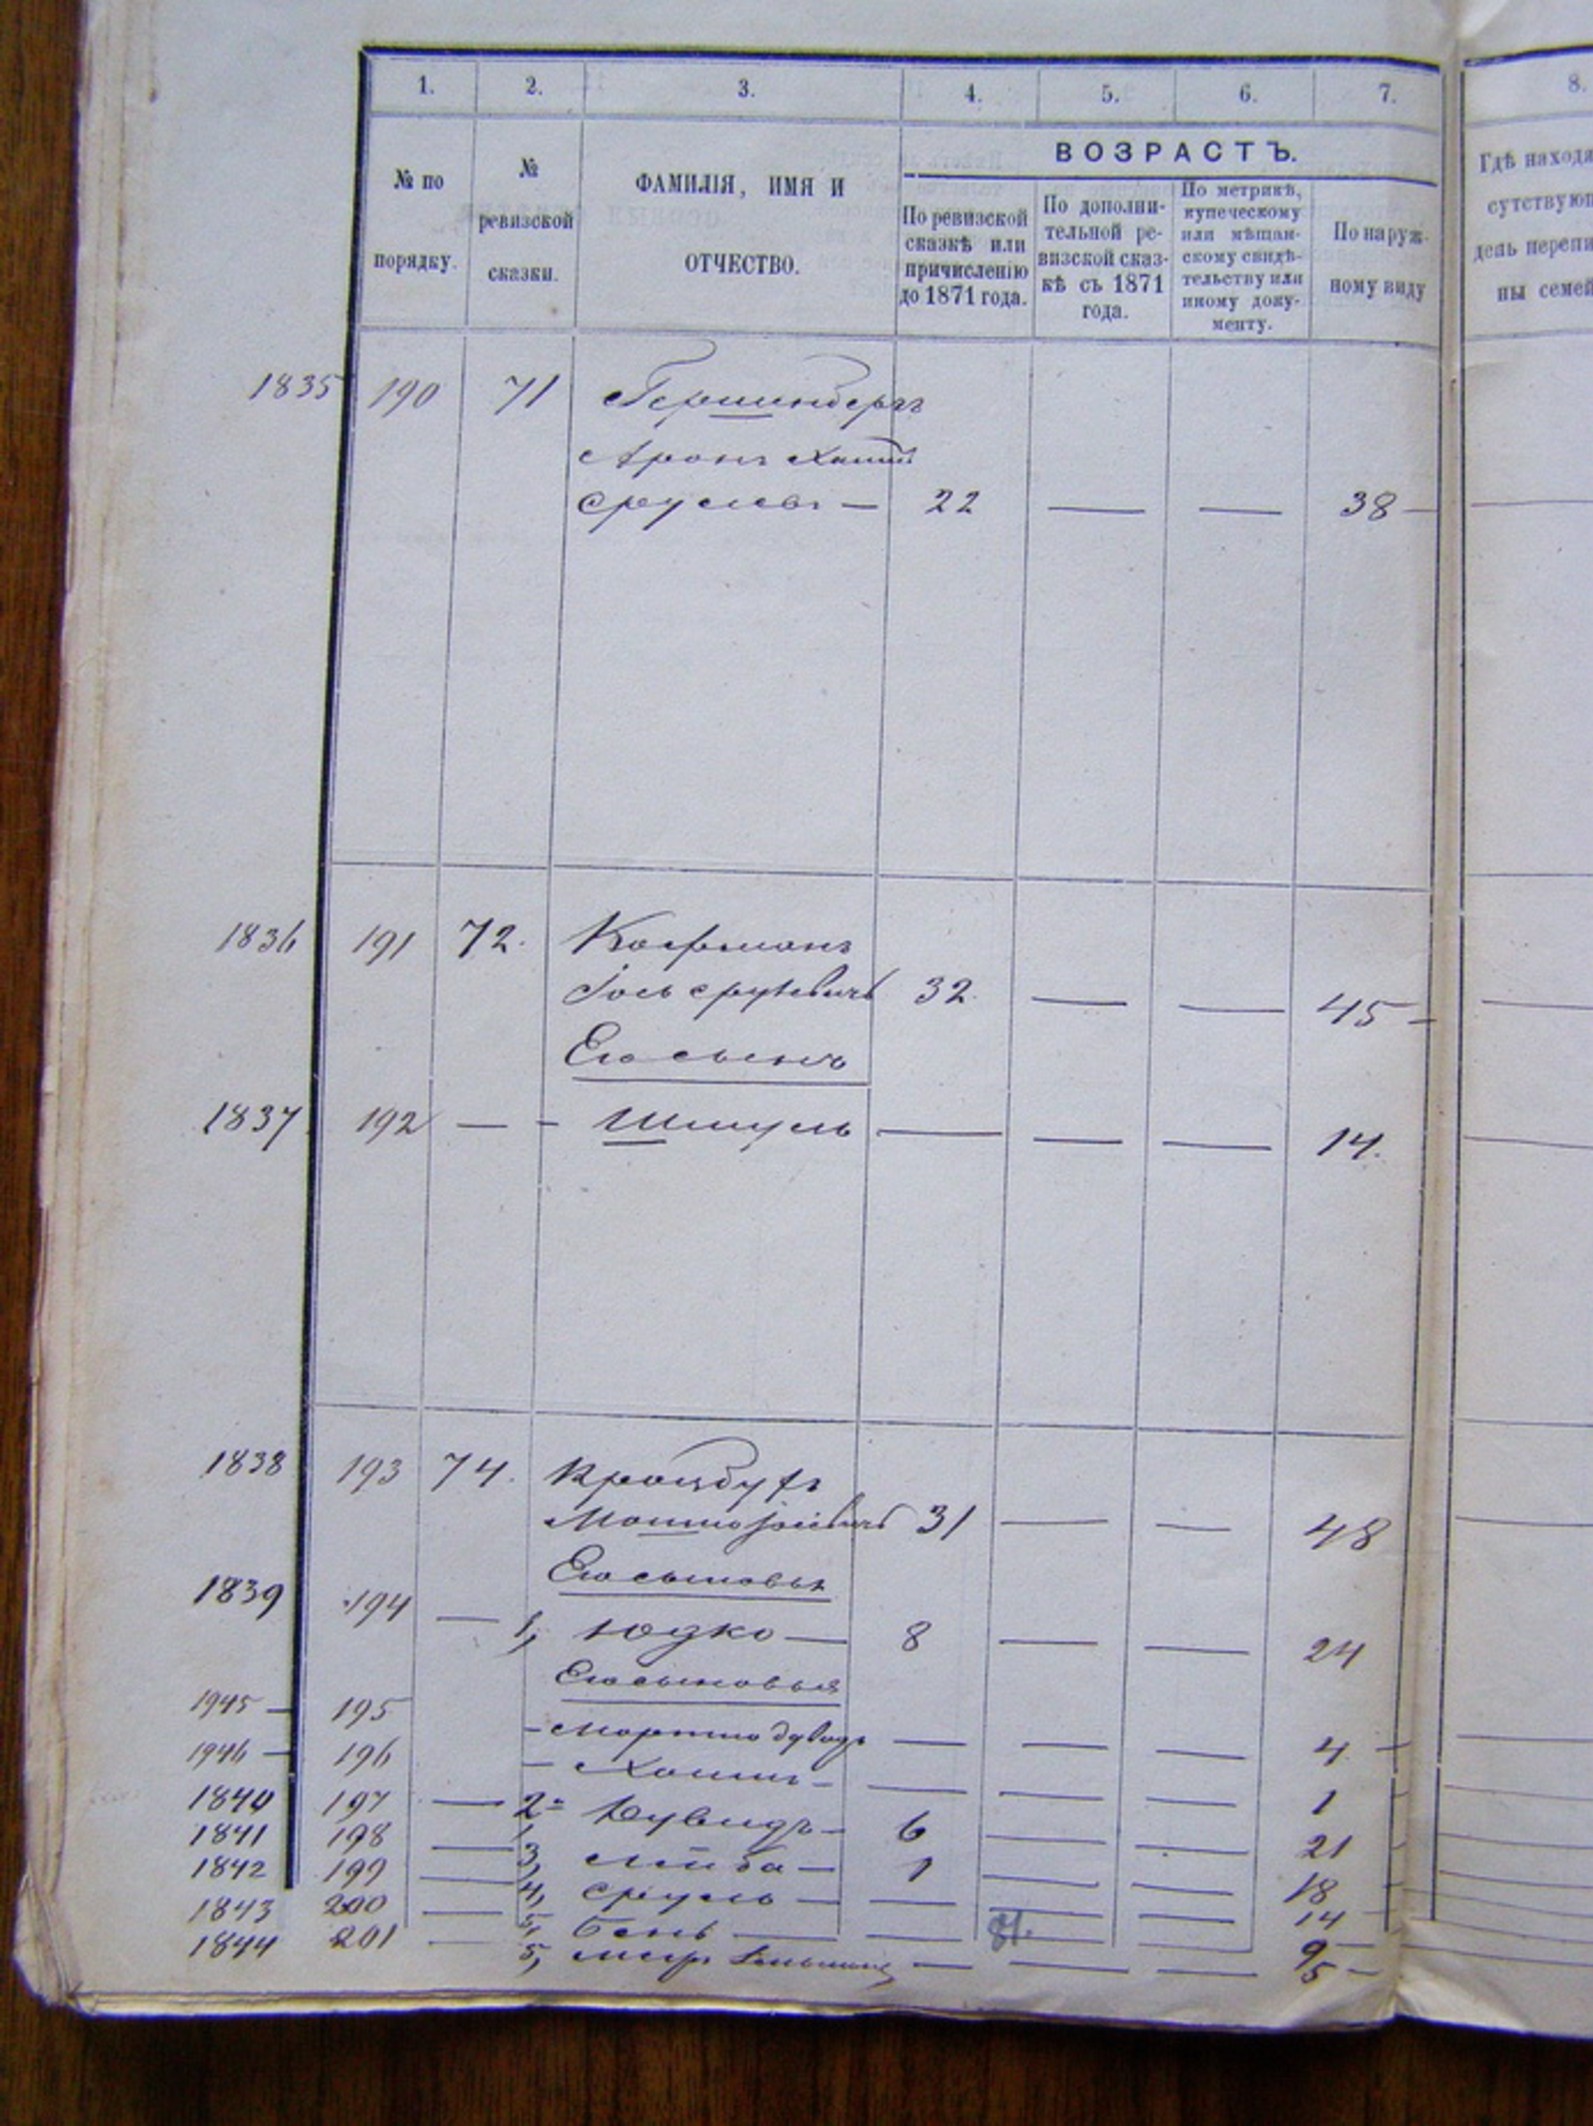 1. 2. 3. 4. 5. 6. 7. 8.
№ по порядку.
№ ревизской сказки.
ФАМИЛІЯ, ИМЯ И ОТЧЕСТВО.
ВОЗРАСТЪ.
По ревизской сказкѣ или причисленію до 1871 года.
По дополни-
тельной ре-
визской сказ-
кѣ съ 1871
года.
По метрикѣ,
купеческому
или мѣщан-
скому свидѣ-
тельству или
иному доку-
менту.
По наруж-
ному виду
Гдѣ находя
сутствую
день перепи
ны семей
1835 190 71 Гершинбергъ
Аронъ Хаимъ
Срулевъ — 22 — — 38 —
1836 191 72. Кофманъ
Іось Срулевичъ 32 — — 45 —
Его сынъ
1837 192 — - Шмуль — — — 14.
1838 193 74.
Мошко 31 — — 48
Его сыновья
1839 194 — 1, Юдко — 8 — — 24
Его сыновья
1945 — 195 - Мортко Дувидъ — — — 4 —
1946 — 196 — Хаимъ — — — — 1
1840 197 — 2 Дувидъ — 6 — — 21
1841 198 — 3, Лейба — 1 — — 18
1842 199 — 4, Сруль — — — — 14
1843 200 — 5, Бень — — — — 9
1844 201 — 5, — — — 5 —
81.